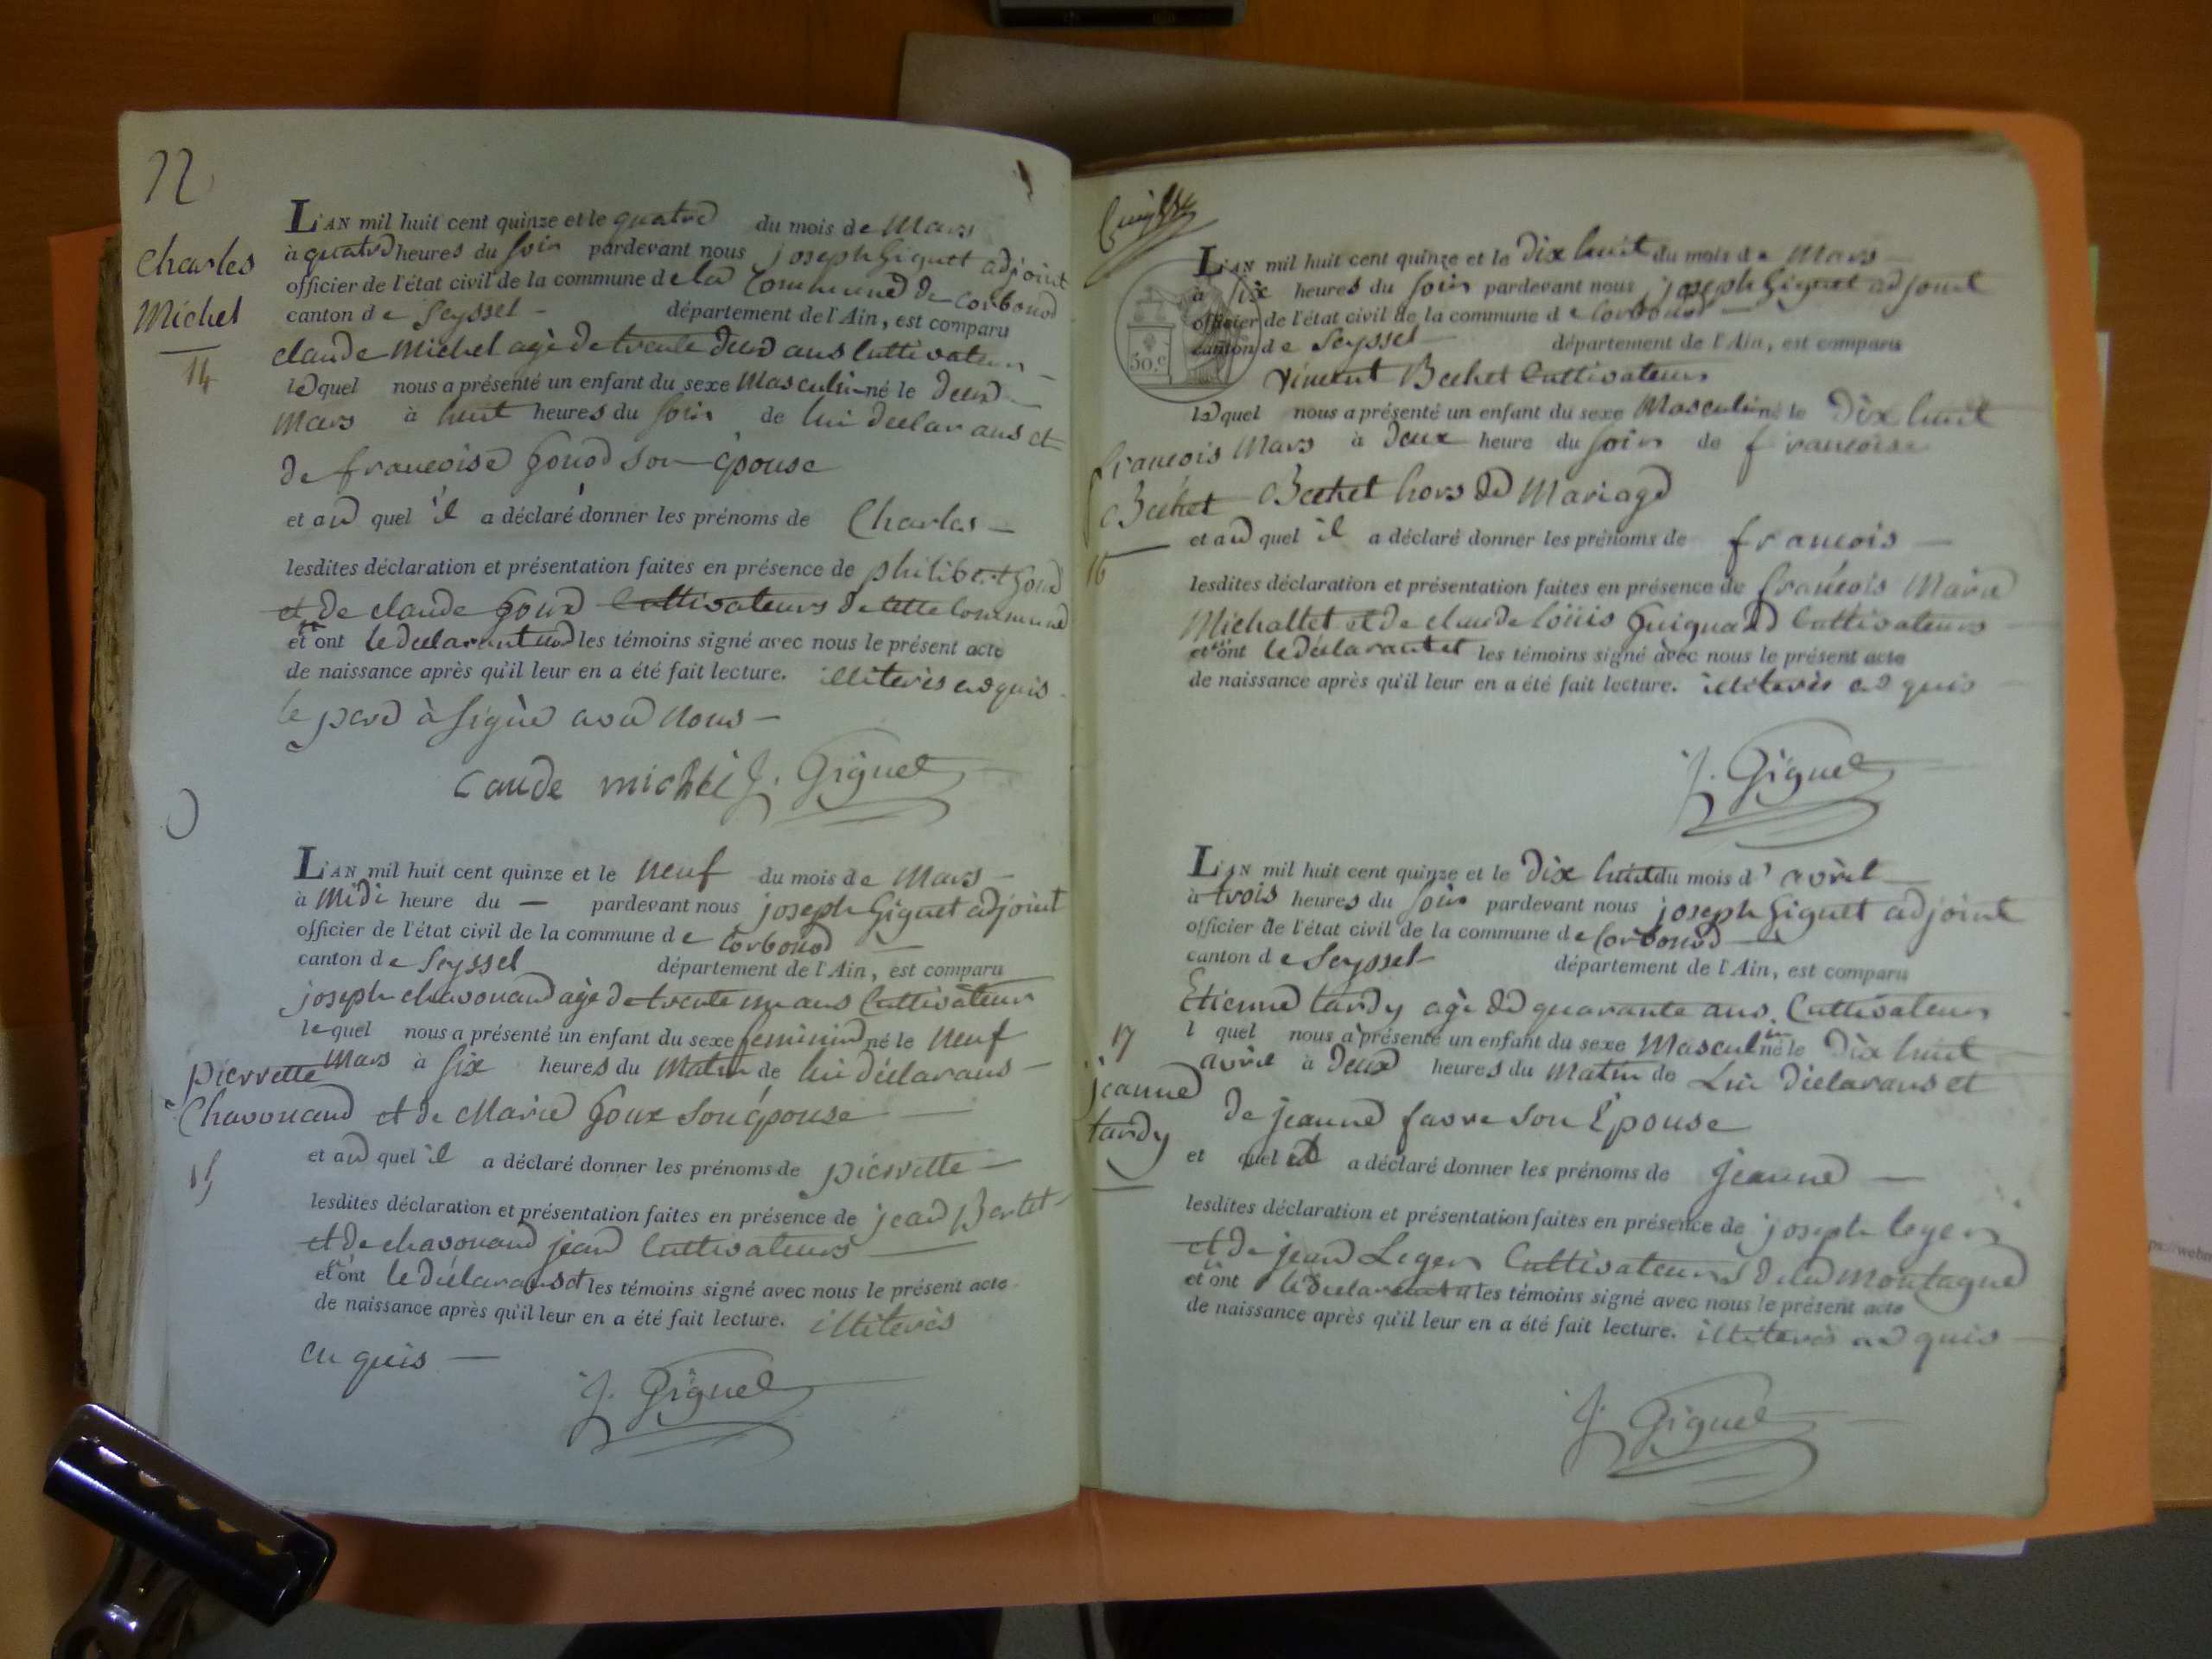 72
Charles
Michel
14
L'AN mil huit cent quinze et le quatre du mois de Mars
à quatre heures du soir pardevant nous joseph Giguet adjoint
officier de l'état civil de la commune de la Commune de Corbonod
canton de Seyssel - département de l'Ain, est comparu
claude Michel agé de trente deux ans Cultivateur -
lequel nous a présenté un enfant du sexe Masculin né le deux
Mars à huit heures du soir de lui declarans et
de francoise gonod son épouse
et au quel il a déclaré donner les prénoms de Charles -
lesdites déclaration et présentation faites en présence de philibert
et de claude Cultivateurs de cette Commune
et ont le declarant les témoins signé avec nous le présent acte
de naissance après qu'il leur en a été fait lecture. illiterés enquis
le pere à signé avec Nous -
Caude michel J. Giguet
L'AN mil huit cent quinze et le neuf du mois de Mars -
à Midi heure du — pardevant nous joseph Giguet adjoint
officier de l'état civil de la commune de Corbonod
canton de Seyssel département de l'Ain, est comparu
joseph chavouand agé de trente un ans Cultivateur
lequel nous a présenté un enfant du sexe feminin né le Neuf
Mars à six heures du Matin de lui déclarans -
pierrette
Chavouand
15
et de Marie goux son épouse
et au quel il a déclaré donner les prénoms de pierrette -
lesdites déclaration et présentation faites en présence de jean Bertet
et de chavouand jean Cultivateurs
et ont le déclarans et les témoins signé avec nous le présent acte
de naissance après qu'il leur en a été fait lecture. illiterés
enquis -
J. Giguet
L'AN mil huit cent quinze et le dix huit du mois de Mars -
à six heures du soir pardevant nous joseph Giguet adjoint
officier de l'état civil de la commune de Corbonod -
canton de Seyssel - département de l'Ain, est comparu
50.c
vincent Bechet Cultivateur
lequel nous a présenté un enfant du sexe Masculin né le Dix huit
Mars à Deux heure du soir de francoise
Bechet hors de Mariage
francois
Bechet
16
et au quel il a déclaré donner les prénoms de francois -
lesdites déclaration et présentation faites en présence de francois Marie
Michallet et de claude loüis guignard Cultivateurs
et ont le déclarant et les témoins signé avec nous le présent acte
de naissance après qu'il leur en a été fait lecture. illiterés enquis
J. Giguet
L'AN mil huit cent quinze et le dix huit du mois d'avril
à trois heures du soir pardevant nous joseph Giguet adjoint
officier de l'état civil de la commune de Corbonod
canton de Seyssel département de l'Ain, est comparu
Etienne tardy agé de quarante ans Cultivateur
l quel nous a présenté un enfant du sexe Masculin né le Dix huit
avril à Deux heures du Matin de Lui Déclarans et
17
jeanne
tardy
de jeanne favre son Epouse
et quel il a déclaré donner les prénoms de jeanne -
lesdites déclaration et présentation faites en présence de joseph leger
et de jean Leger Cultivateurs de la Montagne
et ont le declarant et les témoins signé avec nous le présent acte
de naissance après qu'il leur en a été fait lecture. illiterés enquis
J. Giguet